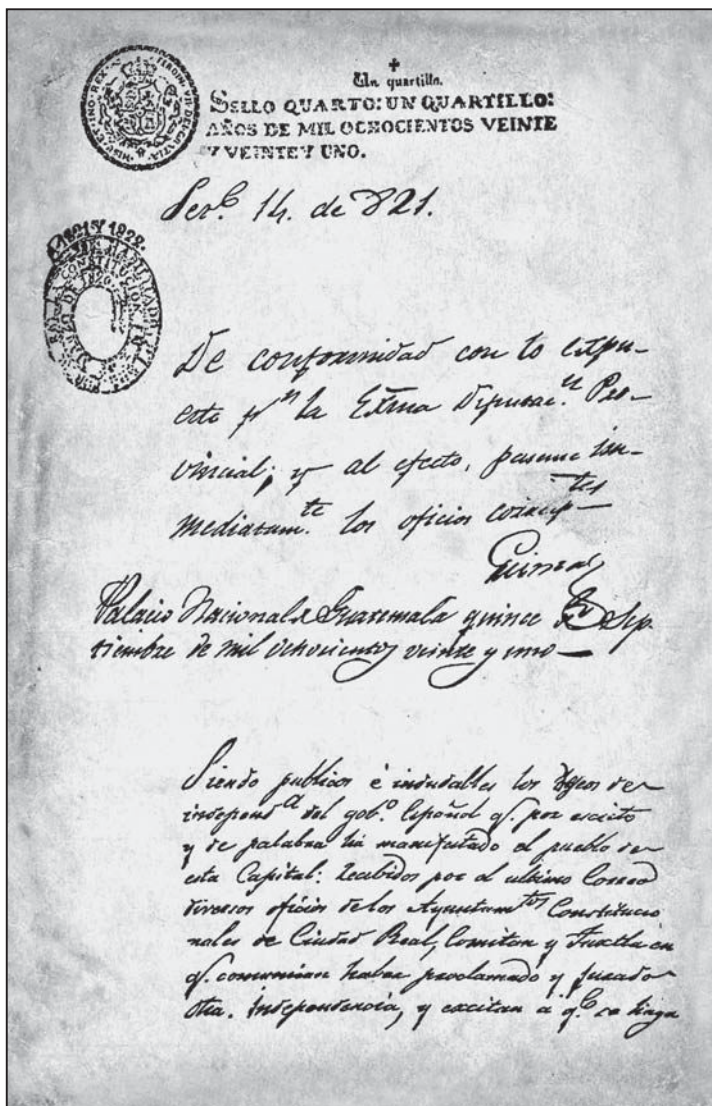 Un quartillo.
SELLO QUARTO: UN QUARTILLO:
AÑOS DE MIL OCHOCIENTOS VEINTE
Y VEINTE Y UNO.
HISPAN ET IND REX FERDIN VII DEI GRATIA
14. de 821.
1821 Y 1822.
De conformidad con lo expu-
esto pr la Exma Diputac.n Pro-
vincial; y al efecto, pasense in-
mediatam.te los oficios
Palacio Nacional de Guatemala quince de Sep.
tiembre de mil ochocientos veinte y uno—
Siendo publicos é indudables los deseos de
independ.a del gob.o Español q.e por escrito
y de palabra ha manifestado el pueblo de
esta Capital: Recibidos por el ultimo Correo
diversos oficios de los Ayuntam.tos Constitucio
nales de Ciudad Real, Comitan y Tuxtla en
q.e comunican haber proclamado y jurado
dha. Independencia, y excitan a q.e se haga